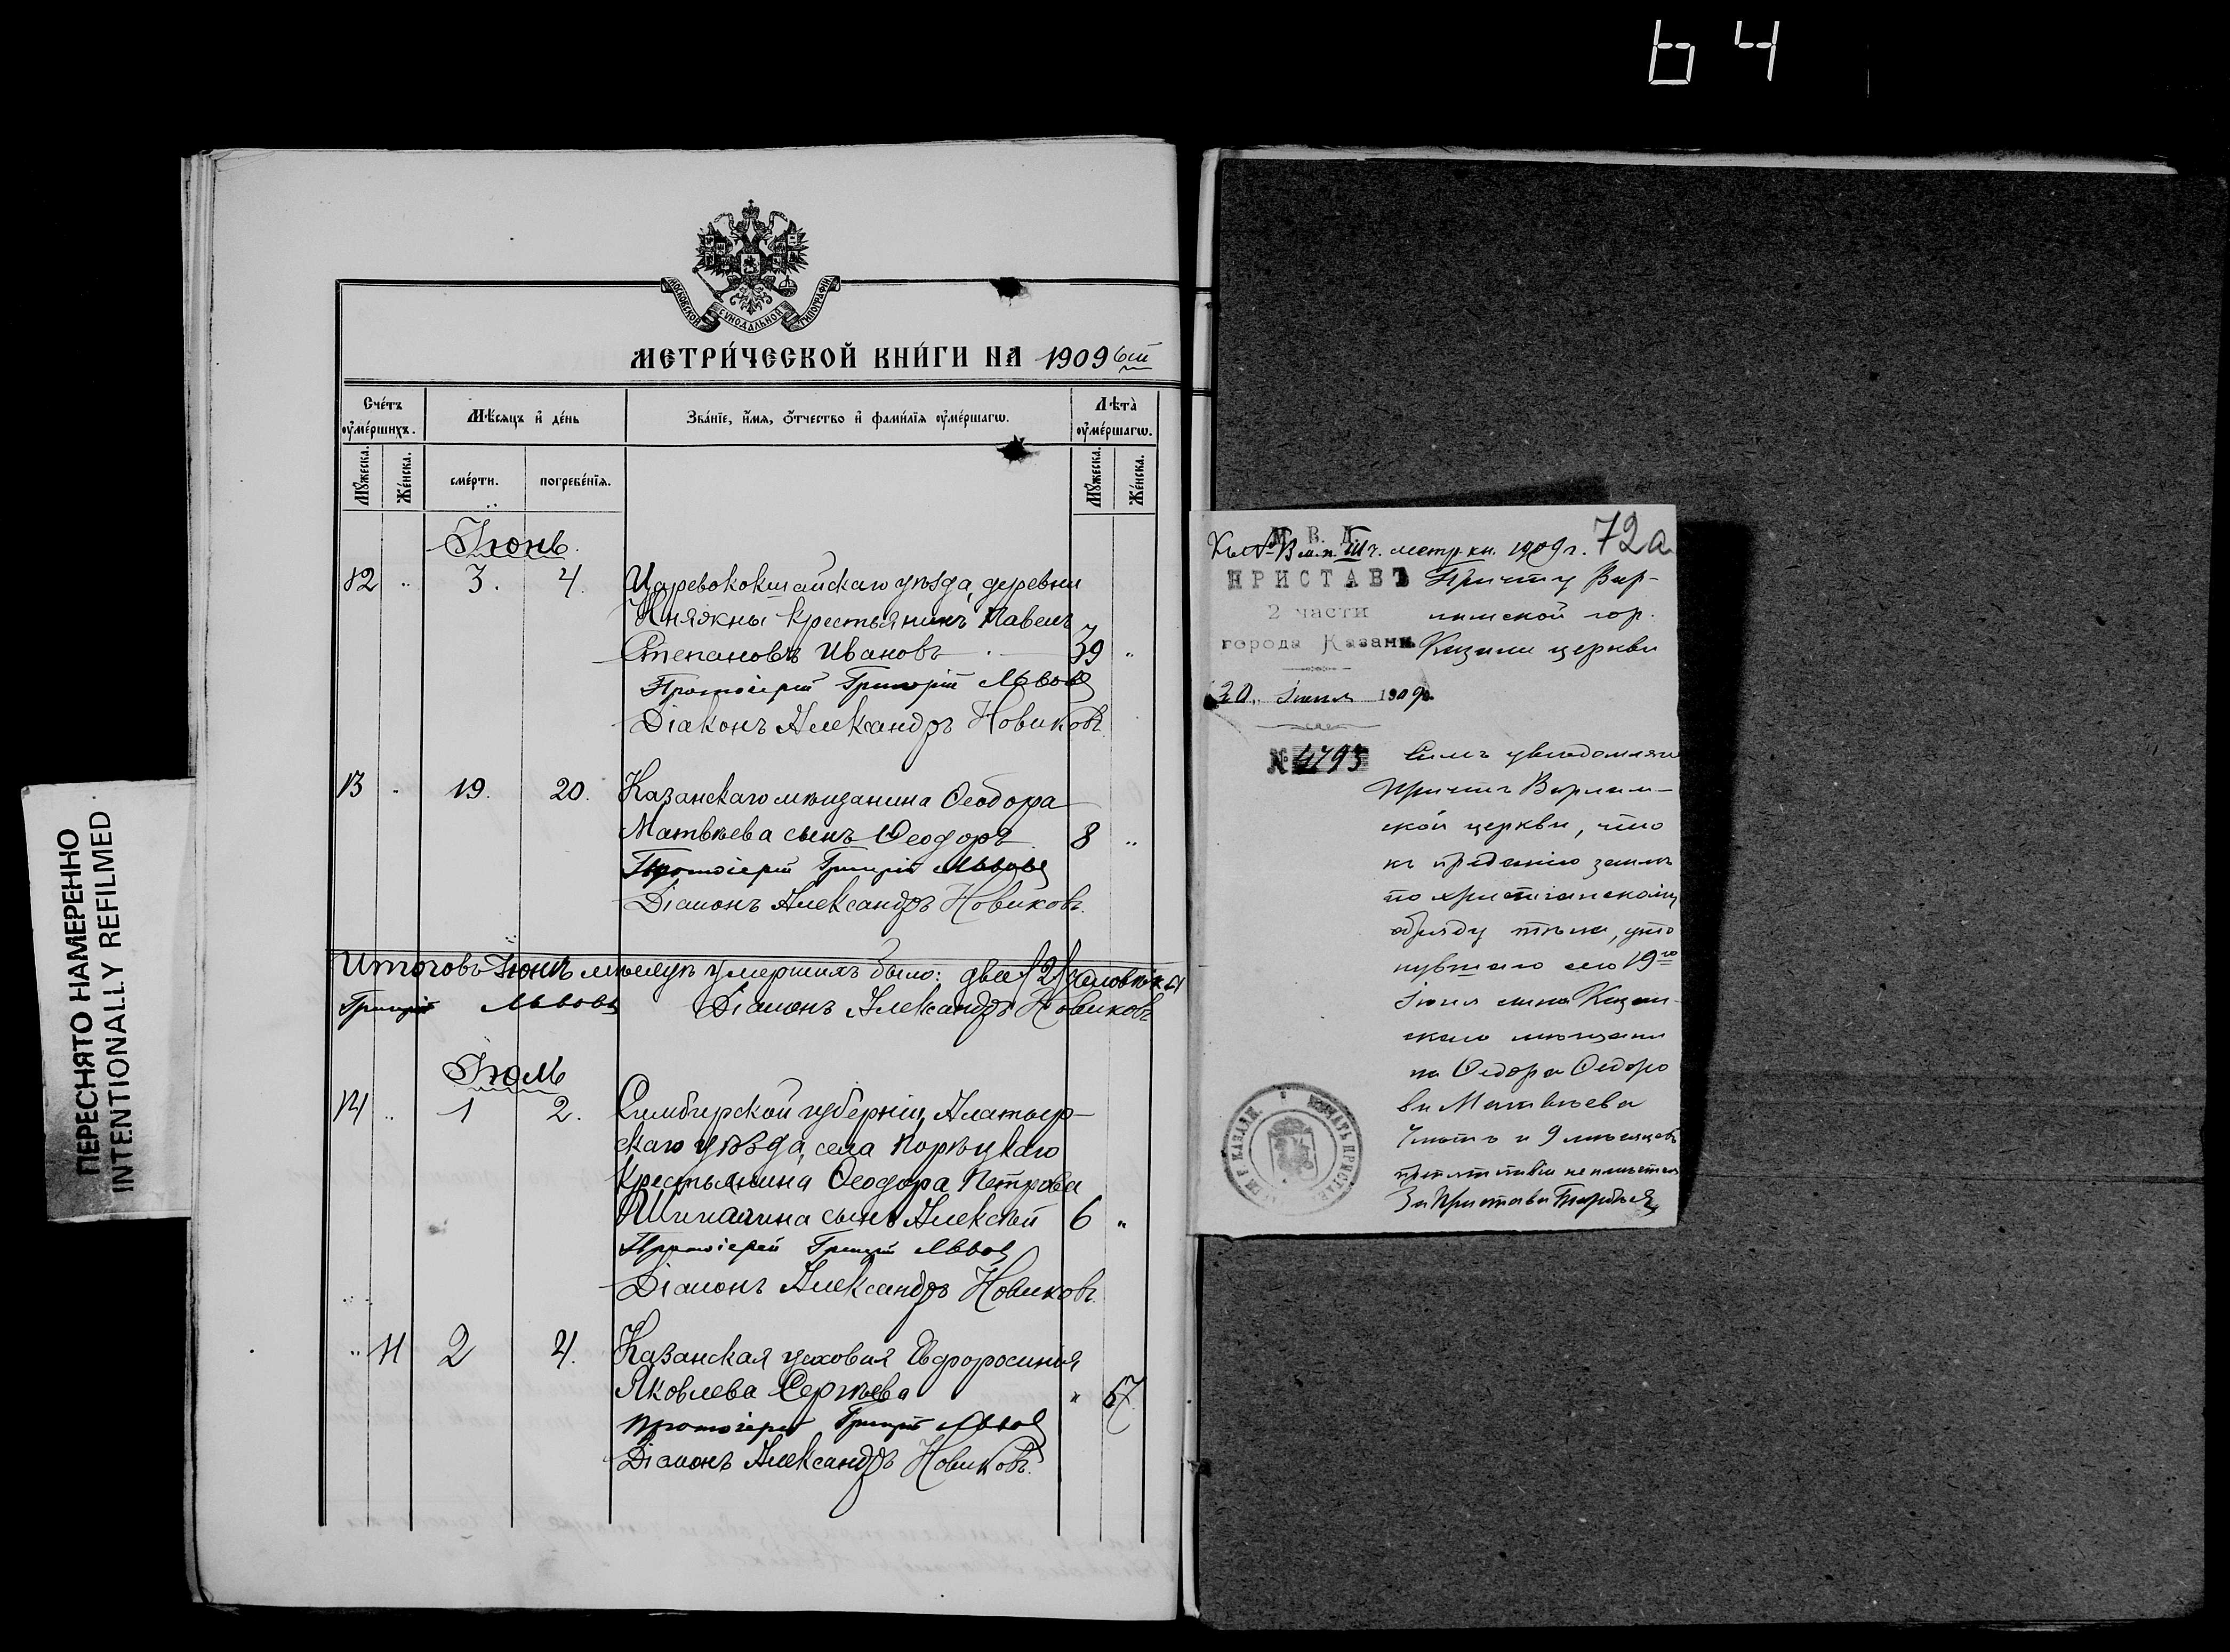 64
ПЕРЕСНЯТО НАМЕРЕННО
INTENTIONALLY REFILMED
МОСКОВСКОЙ СѴНОДАЛЬНОЙ ТИПОГРАФІИ
МЕТРИ́ЧЕСКОЙ КНИ́ГИ НА 1909 ый
Сче́тъ оу҆ме́ршихъ.
Мѣ́сяцъ и҆ де́нь
Зва́нїе, и҆́мя, ѻ҆́тчество и҆ фами́лїя оу҆ме́ршагѡ.
Лѣта̀ оу҆ме́ршагѡ.
Мꙋ́жеска.
Же́нска.
сме́рти.
погребе́нїя.
Мꙋ́жеска.
Же́нска.
Іюнь.
12 " 3. 4. Царевококшайскаго уѣзда, деревни
Княжны крестьянинъ Павелъ
Степановъ Ивановъ 39 "
Протоіерей Григорій Львовъ
Діаконъ Александръ Новиковъ
13 " 19. 20. Казанскаго мѣщанина Ѳеодора
Матвѣева сынъ Ѳеодоръ 8 "
Протоіерей Григорій Львовъ
Діаконъ Александръ Новиковъ.
Итого въ Іюнѣ мѣсяцѣ умершихъ было: два (2) человѣка
Григорій Львовъ Діаконъ Александръ Новиковъ
Іюль
14 " 1 2. Симбирской губерніи, Алатыр-
скаго уѣзда, села Порѣцкаго
крестьянина Ѳеодора Петрова
сынъ Алексѣй 6 "
Протоіерей Григорій Львовъ
Діаконъ Александръ Новиковъ.
" 11 2 4. Казанская цеховая Евфросинія
Яковлева Сергѣева " 67
Протоіерей Григорій Львовъ
Діаконъ Александръ Новиковъ.
72а
М. В. Д.
Къ № 13 м. п. III ч. метр. кн. 1909 г.
ПРИСТАВЪ
2 части
города Казани
20 Іюня 1909 г.
№ 4793
Причту Вар-
ламской гор.
Казани церкви
Симъ увѣдомляю
причтъ Варлам-
ской церкви, что
къ преданію землѣ
по христіанскому
обряду тѣла, уто
нувшаго сего 19го
Іюня сына Казан-
скаго мѣщани
на Ѳедора Ѳедоро
ва Матвѣева
7 лѣтъ и 9 мѣсяцевъ
препятствій не имѣется
За Пристава